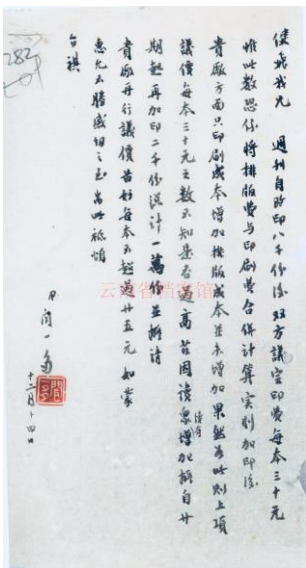 俊哉我兄　週刊自改印八千份後双方議定印費每本三十元
惟此数恐係將排版費与印刷費合併計算实則加印後
貴廠方面只印刷成本增加排版成本並未增加果然為此則上項
議價每本三十元之数不知是否過高茲因讀衆增加擬自廿
期起再加印二千份總計一萬份並擬請
貴廠再行議價苦於每本不超過廿五元如蒙
惠允不勝感切之至耑此祗頌
台祺
弟聞一多
十二月十四日
282
云南省档案馆